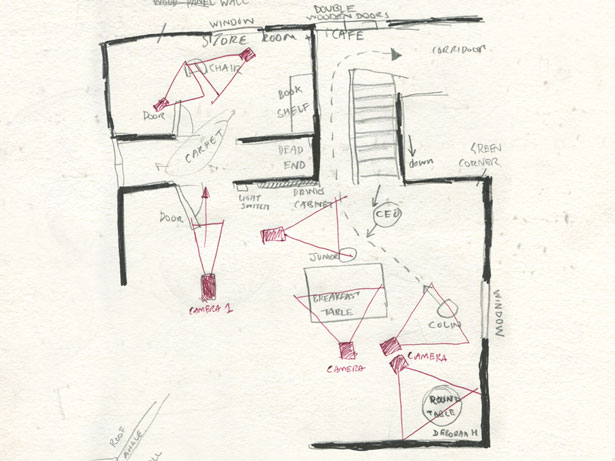 WOOD PANEL WALL
DOUBLE
WOODEN DOORS
WINDOW
STORE ROOM
CAFE
CORRIDOOR
CHAIR
DOOR
BOOK
SHELF
CARPET
DEAD
END
down
GREEN
CORNER
LIGHT
SWITCH
DRINKS
CABINET
DOOR
CEO
JUNIOR
CAMERA 1
BREAKFAST
TABLE
COLIN
WINDOW
CAMERA
CAMERA
ROUND
TABLE
DEBORAH M
ROOF
ANGLE